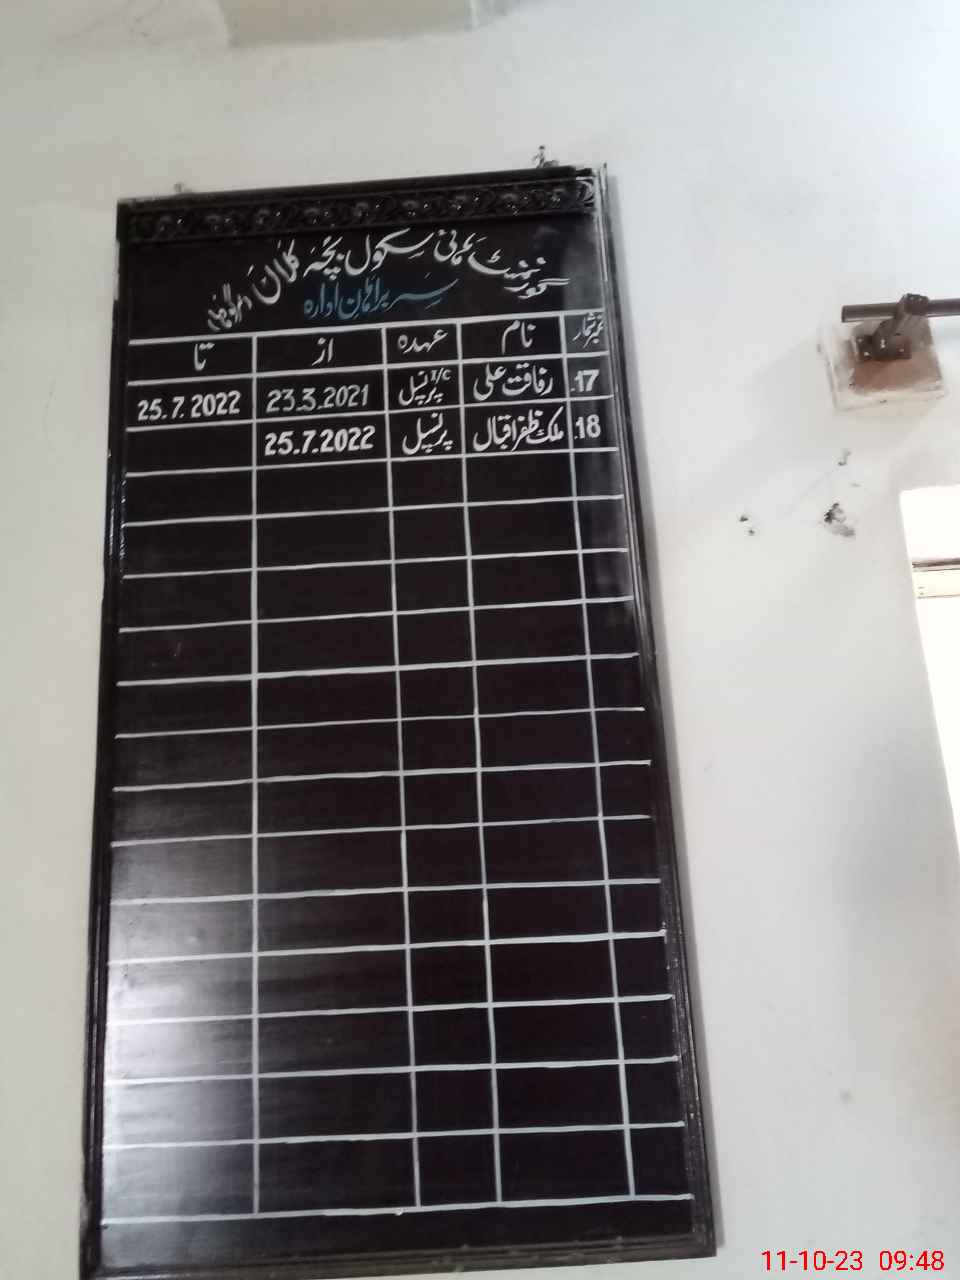 گورنمنٹ ہائی سکول بچہ کلاں (سرگودھا)
سربراہان ادارہ
نمبر شمار نام عہدہ از تا
17. رفاقت علی I/C پرنسپل 23.3.2021 25.7.2022
18. ملک ظفر اقبال پرنسپل 25.7.2022
11-10-23 09:48